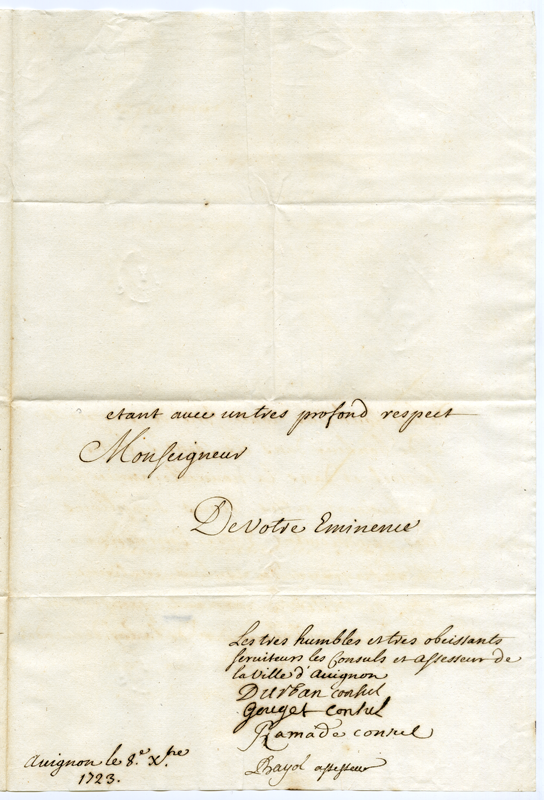 etant avec un tres profond respect
Monseigneur
De Votre Eminence
Les tres humbles et tres obeissants
serviteurs les Consuls et assesseur de
la Ville d'Avignon
Durban consul
Gouget consul
Ramade consul
Bayol assesseur
Avignon le 8.e X.bre
1723.